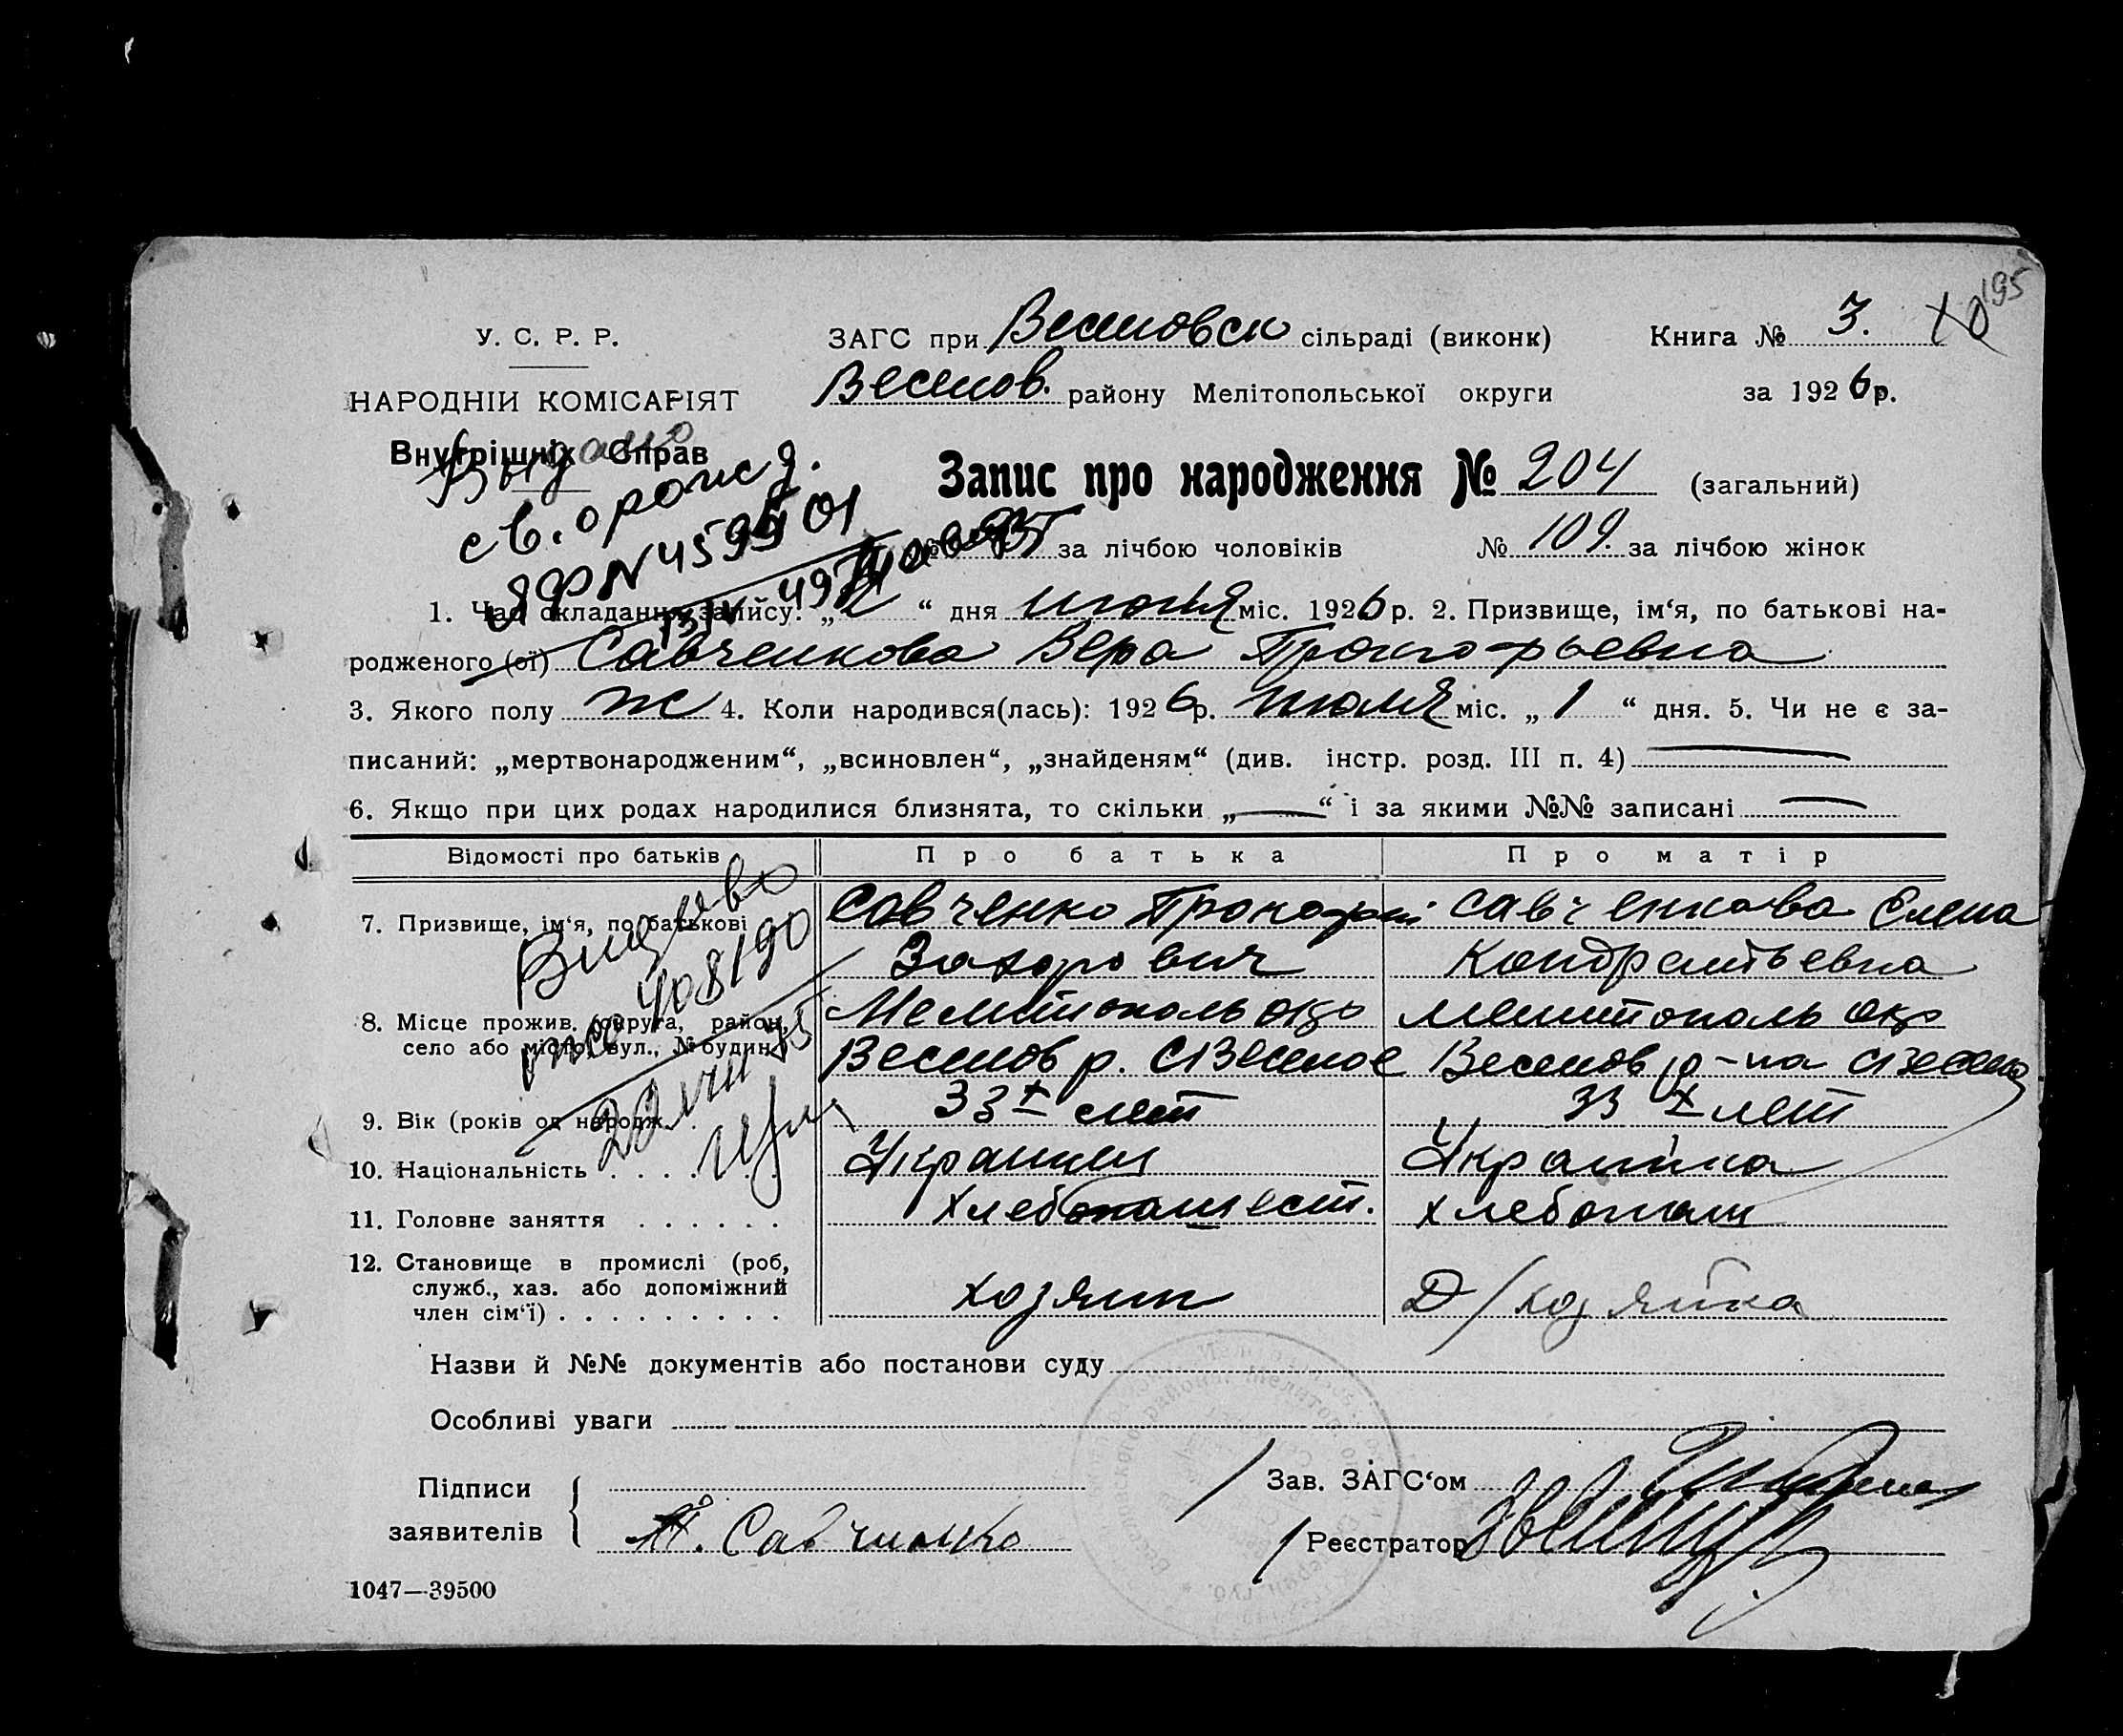 195
У. С. Р. Р.
ЗАГС при Веселовск сільраді (виконк)
Книга № 3.
НАРОДНІЙ КОМІСАРІЯТ
Веселов. району Мелітопольської округи
за 1926 р.
Внутрішніх Справ
Выдано
св. о рожд.
Запис про народження № 204 (загальний)
за лічбою чоловіків № 109. за лічбою жінок
1. Час складання запису: „ “ дня июля міс. 1926 р. 2. Призвище, ім‘я, по батькові на-
родженого (ої) Савченкова Вера Прокофьевна
3. Якого полу ж 4. Коли народився(лась): 1926 р. июля міс. „ 1 “ дня. 5. Чи не є за-
писаний: „мертвонародженим“, „всиновлен“, „знайденям“ (див. інстр. розд. III п. 4)
6. Якщо при цих родах народилися близнята, то скільки „ — “ і за якими №№ записані —
Відомості про батьків
Про батька
Про матір
7. Призвище, ім‘я, по батькові
Савченко Прокофий
Захарович
Савченкова Елена
Кондратьевна
8. Місце прожив. (округа, район,
село або місто, вул., № будин.)
Мелитополь окр
Веселов р. с Веселое
Мелитополь окр
Веселов р-на с Веселое
9. Вік (років од народж.)
33 лет
33 лет
10. Національність . . . . . .
Украинец
Украинка
11. Головне заняття . . . . . .
Хлебопашест.
хлебопаш
12. Становище в промислі (роб,
служб., хаз. або допоміжний
член сім‘ї) . . . . . . . . .
хозяин
Д/хозяйка
408190
Назви й №№ документів або постанови суду
Особливі уваги
Підписи
заявителів
П. Савченко
Зав. ЗАГС‘ом
Реєстратор
1047—39500